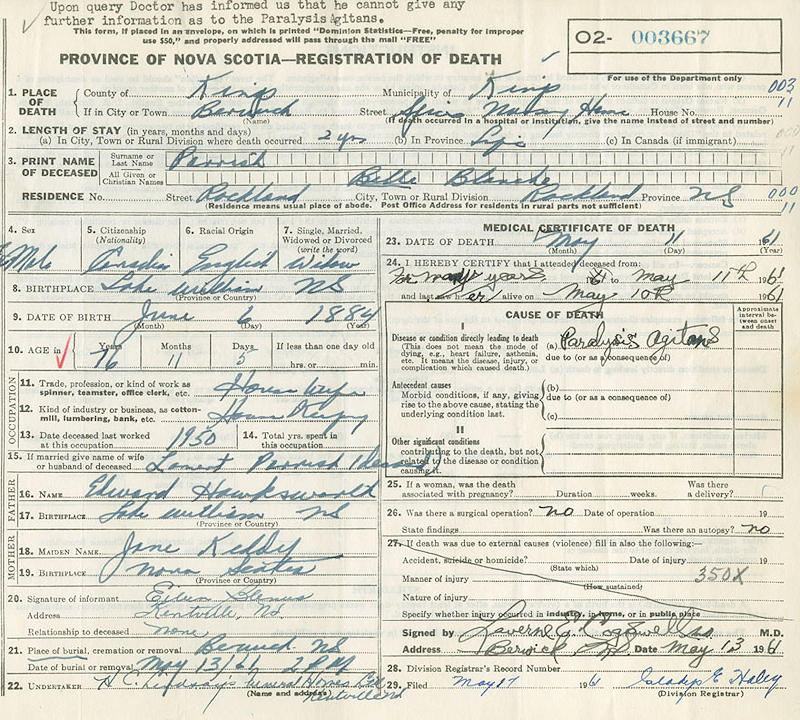 Upon query Doctor has informed us that he cannot give any
further information as to the Paralysis Agitans.
This form, if placed in an envelope, on which is printed "Dominion Statistics—Free, penalty for improper
use $50," and properly addressed will pass through the mail "FREE"
O2- 003667
PROVINCE OF NOVA SCOTIA—REGISTRATION OF DEATH
For use of the Department only
1. PLACE OF DEATH
County of Kings Municipality of Kings 003
If in City or Town Berwick Street Nursing Home House No. 11
(Name) (If death occurred in a hospital or institution, give the name instead of street and number)
2. LENGTH OF STAY (in years, months and days)
(a) In City, Town or Rural Division where death occurred 2 yrs (b) In Province Life (c) In Canada (if immigrant)
3. PRINT NAME OF DECEASED
Surname or Last Name Parrish
All Given or Christian Names Belle Blanche
RESIDENCE No. Street Rockland City, Town or Rural Division Rockland Province NS 000
(Residence means usual place of abode. Post Office Address for residents in rural parts not sufficient) 11
4. Sex 5. Citizenship (Nationality) 6. Racial Origin 7. Single, Married, Widowed or Divorced (write the word)
Canadian English Widow
8. BIRTHPLACE Lake William NS
(Province or Country)
9. DATE OF BIRTH June 6 1884
(Month) (Day) (Year)
10. AGE in Years Months Days If less than one day old
76 11 5 hrs. or min.
OCCUPATION
11. Trade, profession, or kind of work as spinner, teamster, office clerk, etc. House wife
12. Kind of industry or business, as cotton-mill, lumbering, bank, etc.
13. Date deceased last worked at this occupation 1950 14. Total yrs. spent in this occupation
15. If married give name of wife or husband of deceased Lamont Parrish
FATHER
16. NAME Edward Hawksworth
17. BIRTHPLACE Lake William NS
(Province or Country)
MOTHER
18. MAIDEN NAME Jane Keddy
19. BIRTHPLACE Nova Scotia
(Province or Country)
20. Signature of informant
Address Kentville, NS
Relationship to deceased None
21. Place of burial, cremation or removal Berwick NS
Date of burial or removal May 13/61, 2 PM
22. UNDERTAKER H C Lindsay's Funeral Home Ltd
(Name and address) Kentville NS
MEDICAL CERTIFICATE OF DEATH
23. DATE OF DEATH May 11 1961
(Month) (Day) (Year)
24. I HEREBY CERTIFY that I attended deceased from:
For many years to May 11th 1961
and last saw her alive on May 10th 1961
CAUSE OF DEATH
Approximate interval between onset and death
I
Disease or condition directly leading to death (a) Paralysis Agitans
(This does not mean the mode of dying, e.g., heart failure, asthenia, etc. It means the disease, injury, or complication which caused death.)
due to (or as a consequence of)
Antecedent causes (b)
Morbid conditions, if any, giving rise to the above cause, stating the underlying condition last.
due to (or as a consequence of)
(c)
II
Other significant conditions
contributing to the death, but not related to the disease or condition causing it.
25. If a woman, was the death associated with pregnancy? Duration weeks. Was there a delivery?
26. Was there a surgical operation? no Date of operation 19
State findings Was there an autopsy? no
27. If death was due to external causes (violence) fill in also the following:—
Accident, suicide or homicide? Date of injury 19
(State which)
Manner of injury 350X
(How sustained)
Nature of injury
Specify whether injury occurred in industry, in home, or in public place
Signed by M.D.
Address Berwick NS Date May 13 1961
28. Division Registrar's Record Number
29. Filed May 17 1961 Gladys E Haley
(Division Registrar)